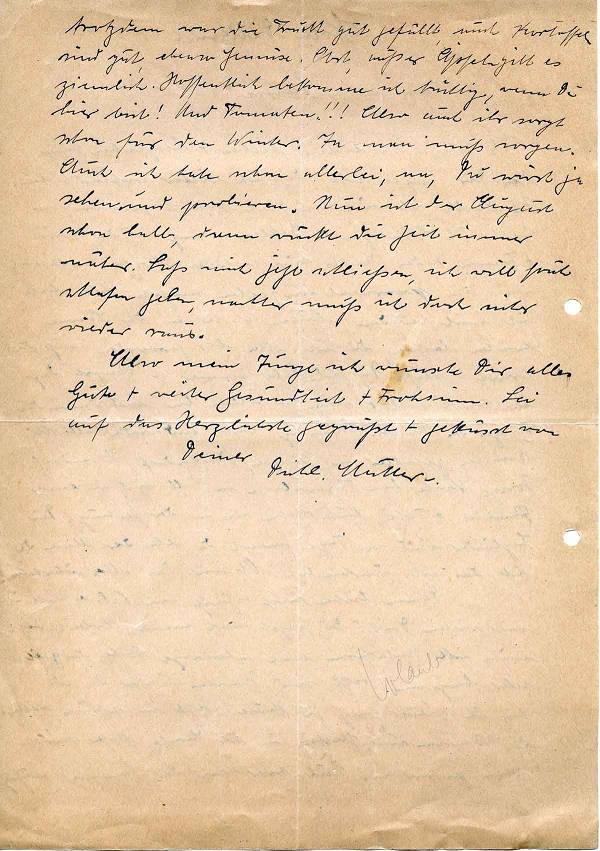 trotzdem war die Frucht gut gefüllt und Kartoffel
sind gut, ebenso Gemüse. Obst, außer Äpfel, gibt es
ziemlich. Hoffentlich bekomme ich künftig, wenn Du
hier bist! Und Tomaten!!! Also auch ihr sorgt
schon für den Winter. Ja man muß sorgen.
Auch ich habe schon allerlei, na, Du wirst ja
sehen und probieren. Nun ist der August
schon bald, dann rückt die Zeit immer
näher. Laß mich jetzt schließen, ich will
schlafen gehen, muß ich doch
wieder raus.
Also mein Junge ich wünsche Dir alles
Gute + weiter Gesundheit + Frohsinn. Sei
auf das Herzlichste gegrüßt + geküsst von
Deiner
Dichl. Mutter.